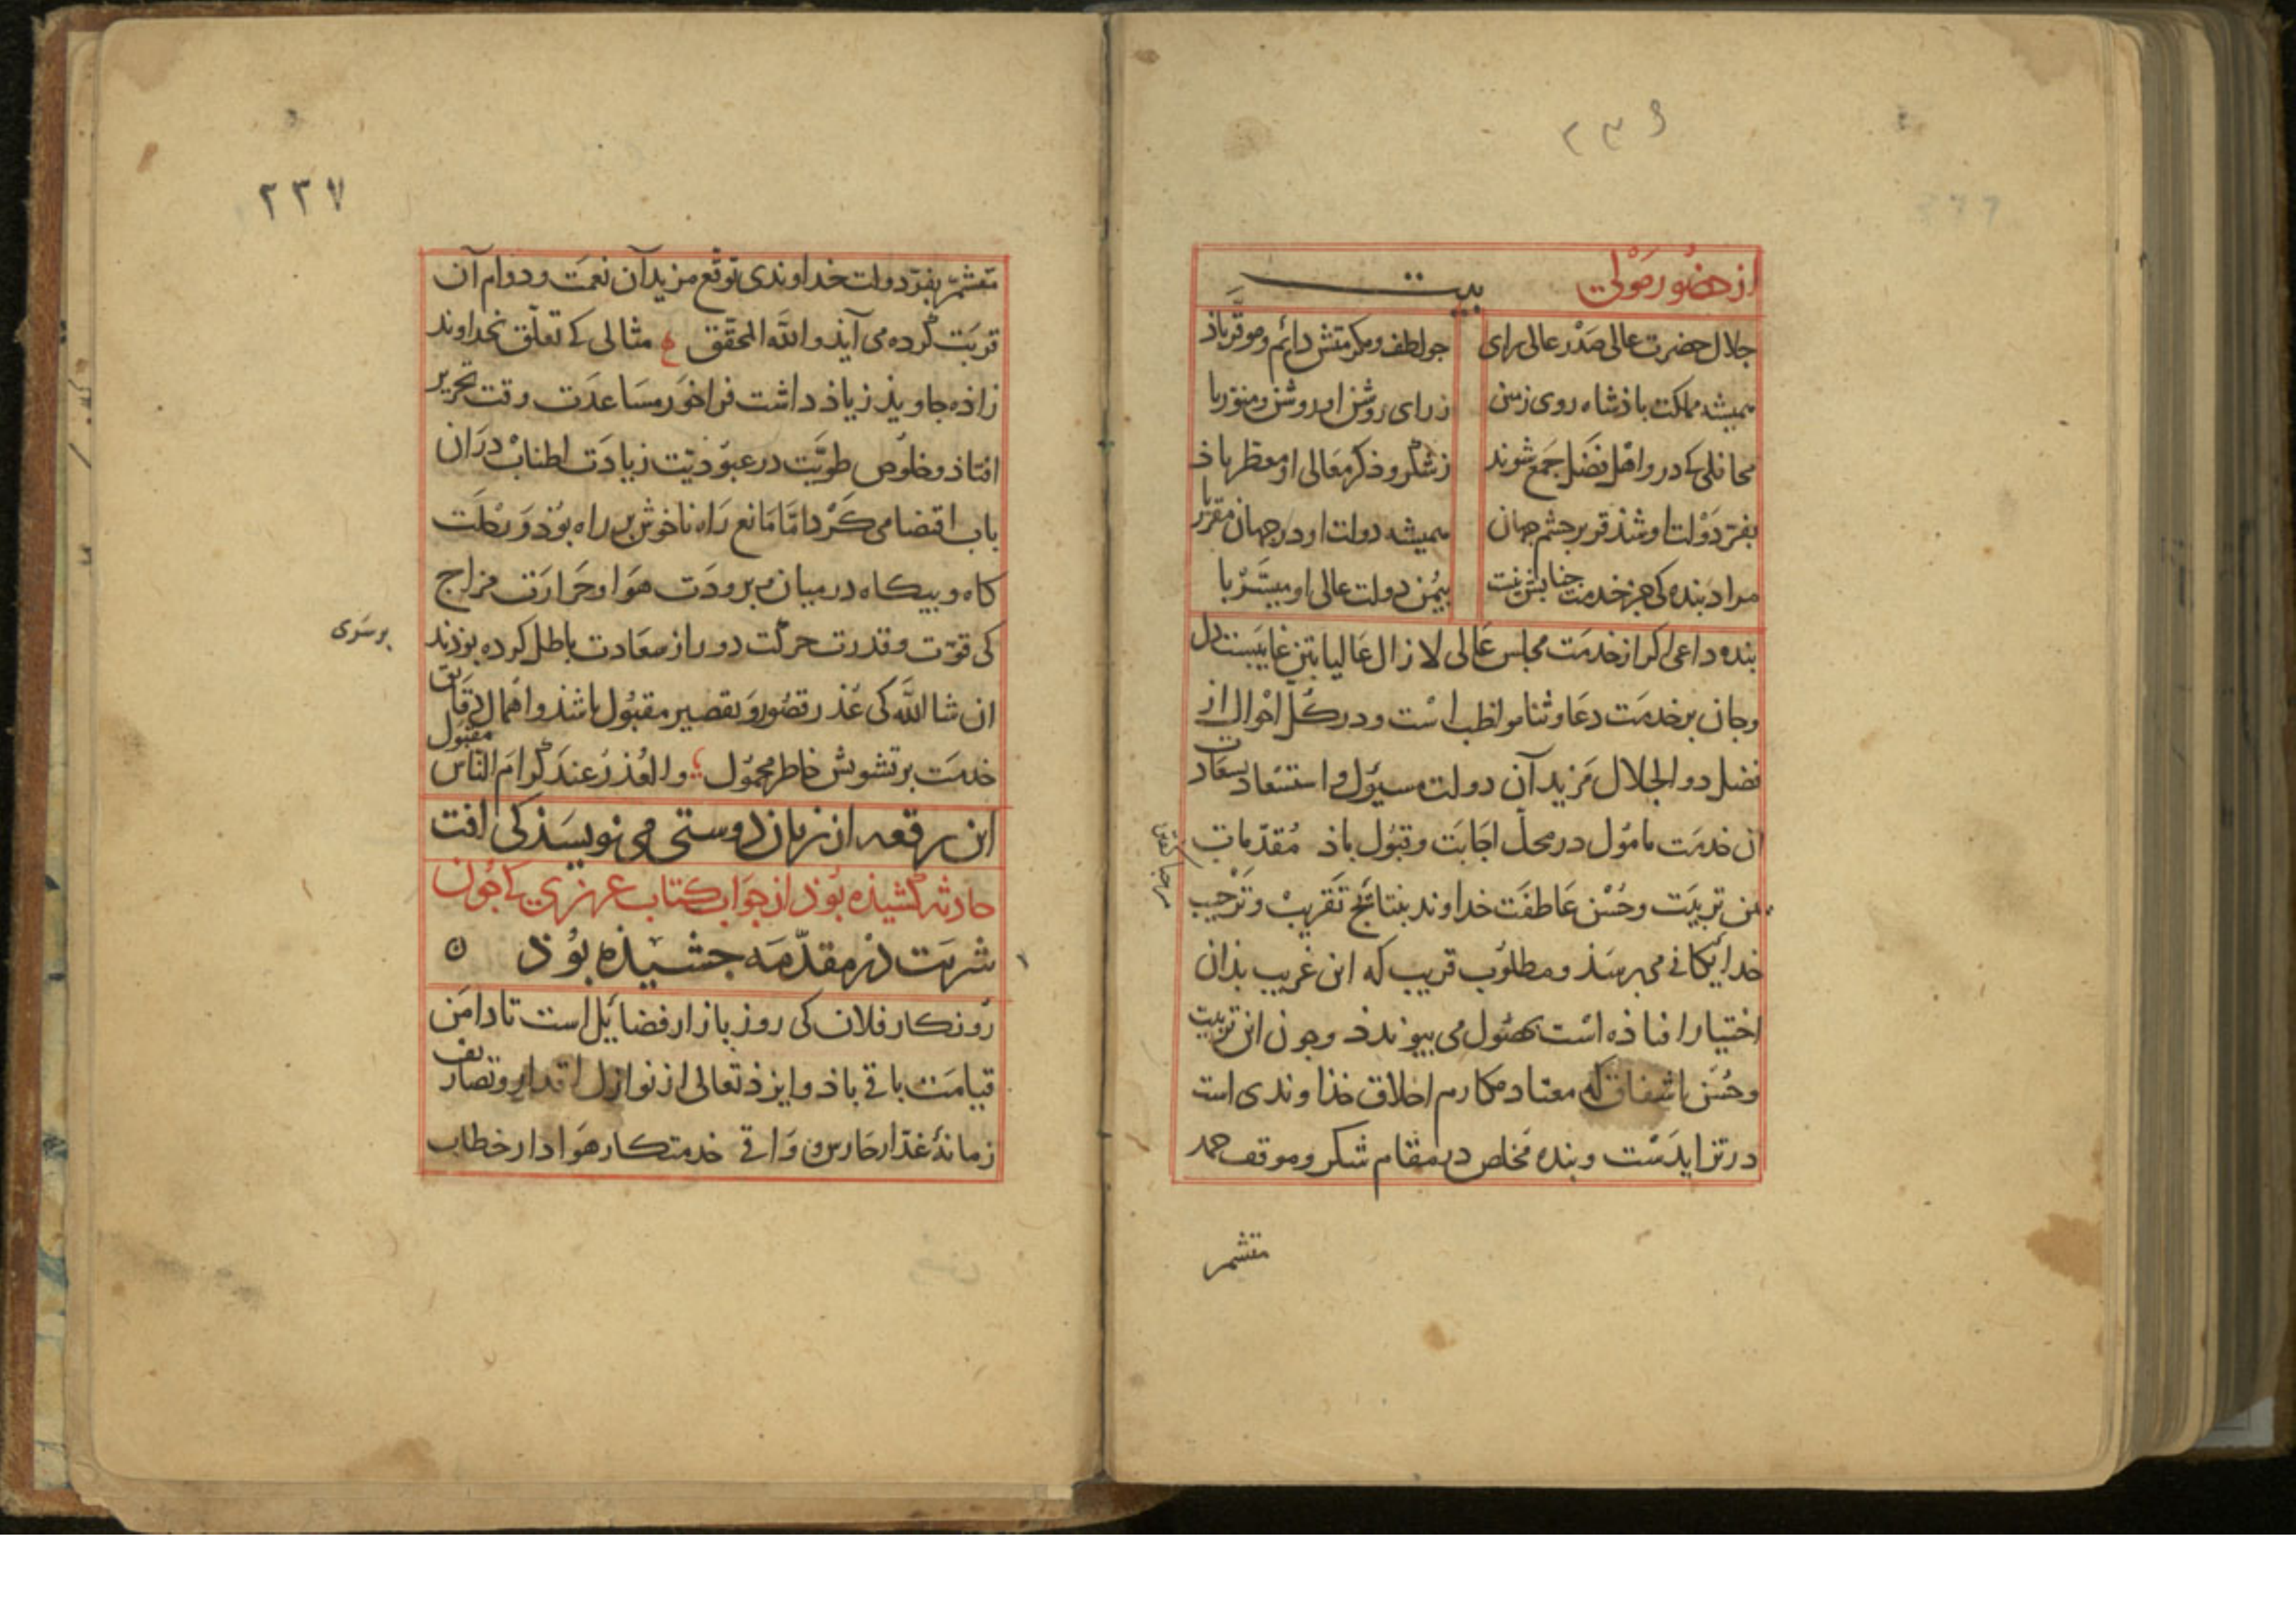 ۲۳۶
از حضور مولی بیت
جلال حضرت عالی صدر عالی رای
جو لطف ومکرمتش دائم وموقر باذ
همیشه مملکت باذشاه روی زمین
ز رای روشن او روشن ومنور با
محافلی که درو اهل فضل جمع شوند
ز شکر وذکر معالی او معطر باذ
بفر دولت او شذ قریر جشم جهان
همیشه دولت او در جهان مقرر با
مراد بنده کی جز خدمت جنابش نیست
بیمن دولت عالی او میسر با
بنده داعی اکر از خدمت مجلس عالی لا زال عالیا بتن غایبست دل
وجان بر خدمت دعا وثنا مواظب است ودر کل احوال از
فضل ذو الجلال مزید آن دولت مسئول واستسعاد بسعادت
ان خدمت مامول در محل اجابت وقبول باذ مقدمات
تربیت وحسن عاطفت خداوند بنتائج تقریب وترحیب
خدایکانی می برسذ ومطلوب قریب که این غریب بذان
اختیار افتاذه است بحصول می بیوندذ وجون این تربیت
وحسن اشفاق که معتاد مکارم اخلاق خذاوندی است
در تزایدست وبنده مخلص در مقام شکر وموقف حمد
متشمر
۲۳۷
متشمر بفر دولت خداوندی توقع مزید آن نعمت ودوام آن
تربت کرده می آیذ والله المحقق ع مثالی که تعلق بخداوند
زاذه جاویذ زیاذ داشت فراخور مساعدت وقت تحریر
افتاذ وخلوص طویت در عبوذیت زیادت اطناب در ان
باب اقتضا می کرد اما مانع راه ناخوش بر راه بوذ ورحلت
کاه وبیکاه در میان وبرودت هوا وحرارت مزاج
کی قوت وقدرت حرکت دور از سعادت باطل کرده بوذند
بر سری
ان شا الله کی عذر قصور وتقصیر مقبول باشذ واهمال دقایق
خدمت بر تشویش خاطر محمول ع والعذر عند کرام الناس مقبول
این رقعه از زبان دوستی می نویسذ کی آفت
حادثه کشیذه بوذ از جواب کتاب عزیزی که جون
شربت در مقدمه جشیذه بوذ ن
روزکار فلان کی روز بازار فضایل است تا دامن
قیامت باقی باذ وایزذ تعالی از نوازل اقدار وتصاریف
زمانه غدار حارس و واقی خدمتکار هوادار خطاب